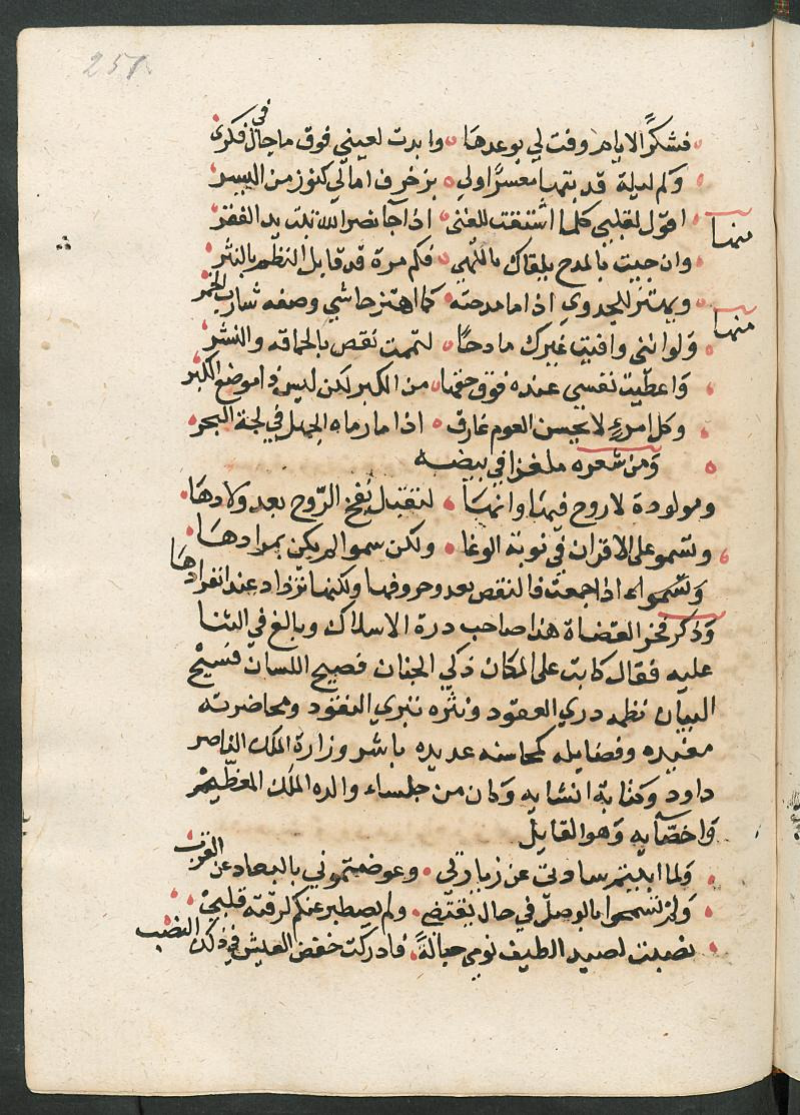 251
فشكرًا لايام وفت لي بوعدها وابدت لعيني فوق ما جال في فكري
وكم ليلة قد بتها معسرًا ولي بزخرف امالي كنوز من اليسر
منها اقول لقلبي كلما اشتقت للغنى اذا جا نصر الله تبت يد الفقر
وان جيت بالمدح يلقاك باللهى فكم مرة قد قابل النظم بالنثر
منها ويهتز للجدوى اذا ما مدحته كما اهتز حاشى وصفه شارب الخمر
ولو انني وافيت غيرك مادحًا لتممت نقص بالحماقه والنشر
واعطيت نفسي عنده فوق حقها من الكبر لكن ليس ذا موضع الكبر
وكل امرءٍ لا يحسن العوم غارق اذا ما رماه الجهل في لجة البحر
ومن شعره ملغزا في بيضه
ومولودة لا روح فيها وانها لتقبل نفخ الروح بعد ولادها
وتسمو على الاقران في نوبة الوغا ولكن سموا لم يكن بمرادها
وتسمواء اذا جمعت فالنقص بعد وحروفها ولكنها تزداد عند انفرادها
وذكر فخر القضاة هذا صاحب درة الاسلاك وبالغ في الثنا
عليه فقال كاتب على المكان ذكي الجنان فصيح اللسان فسيح
البيان نظمه دري العقود ونثره تبري النقود ومحاضرته
مفيده وفضايله كمحاسنه عديده باشر وزارة الملك الناصر
داود وكتابة انشايه وكان من جلساء والده الملك المعظم
واخصآيه وهو القايل
ولما ابيتم سادتي عن زيارتي وعوضتموني بالبعاد عن القرب
ولم تسمحوا بالوصل في حال يقظتي ولم يصطبر عنكم لرقته قلبي
نصبت لصيد الطيف نومي حبالةً فادركت خفض العيش في ذلك النصب